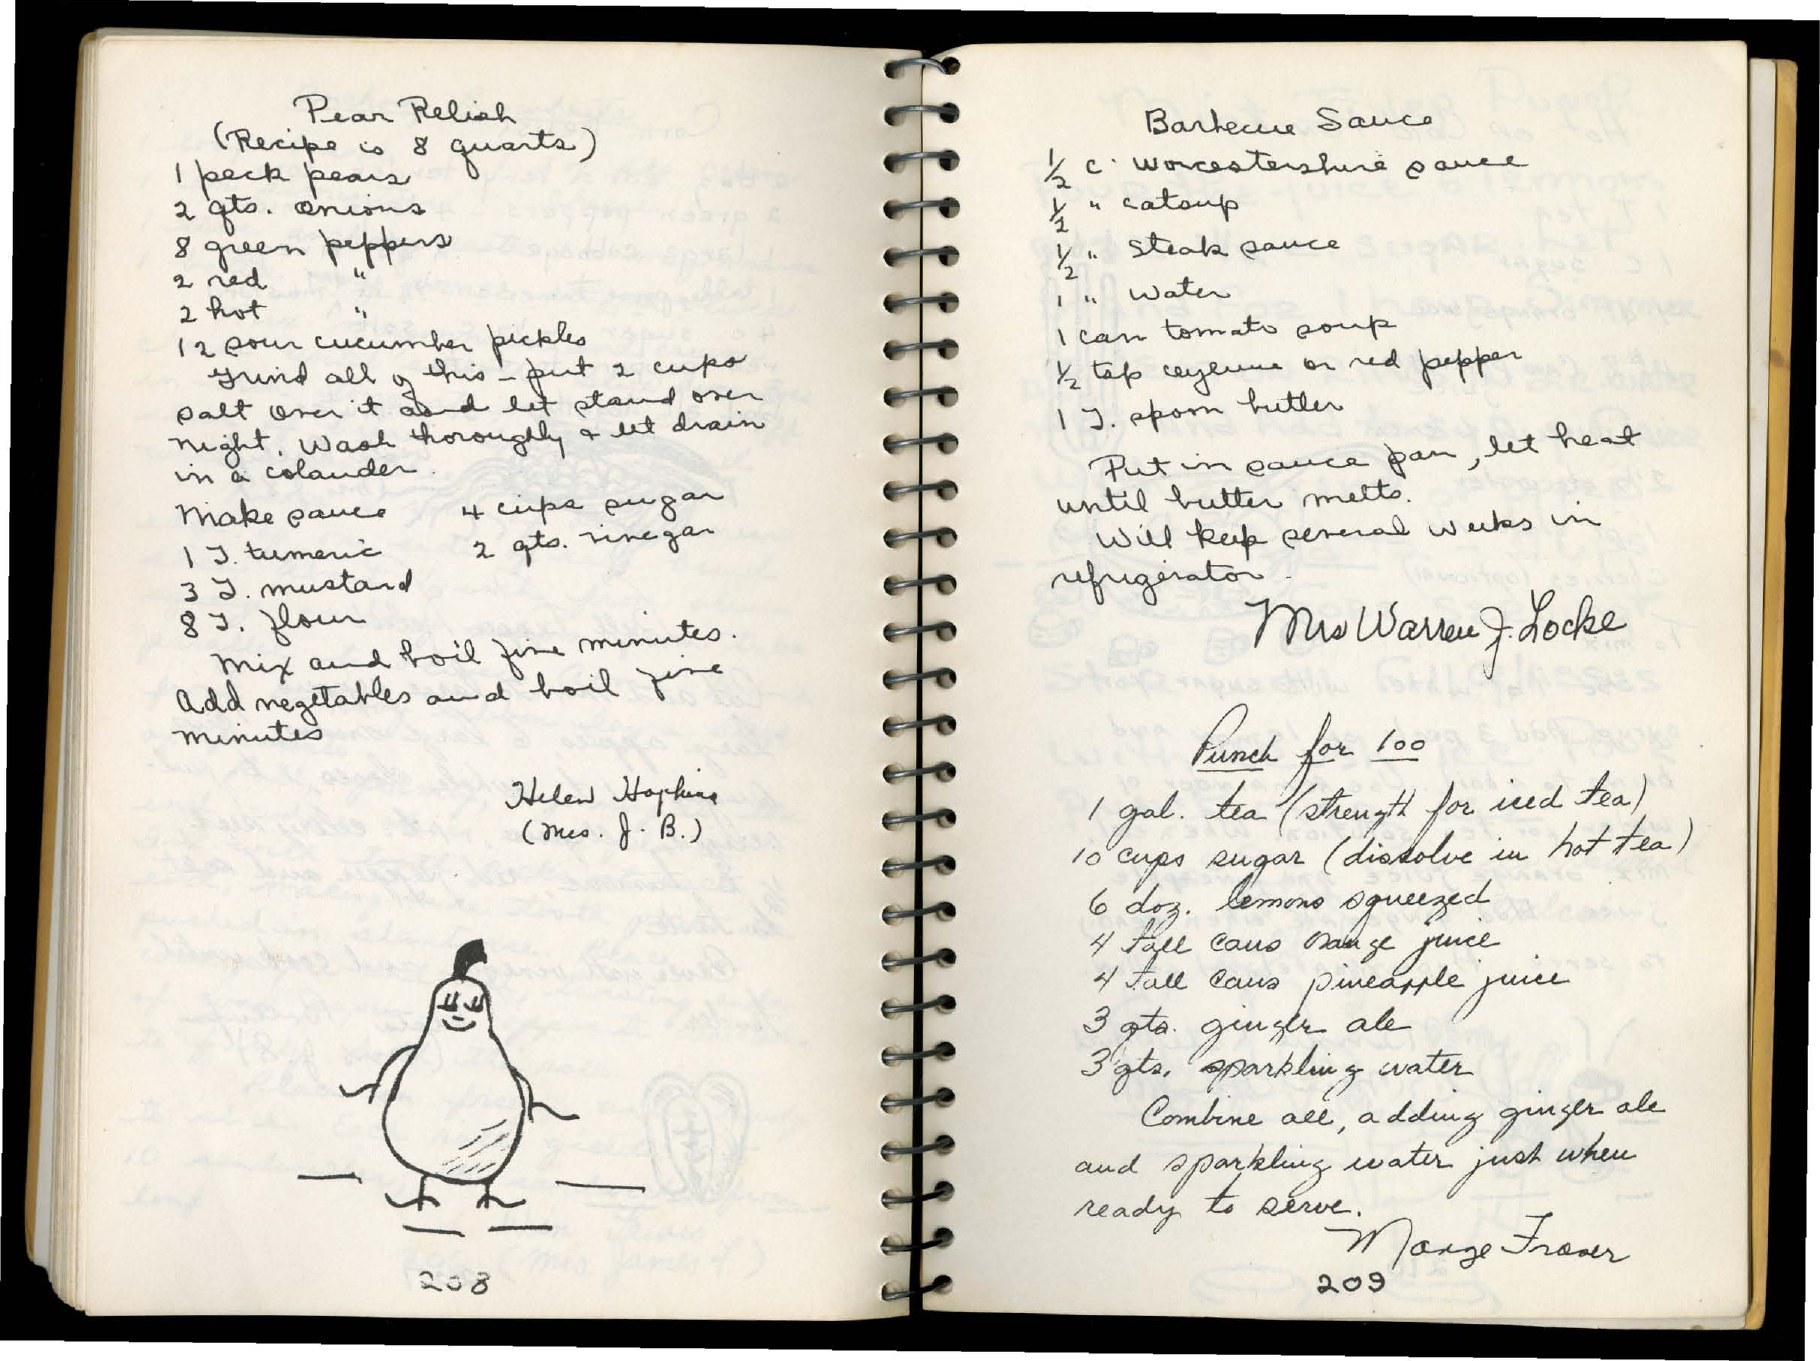 Pear Relish
(Recipe is 8 quarts)
1 peck pears
2 qts. onions
8 green peppers
2 red "
2 hot "
12 sour cucumber pickles
Grind all of this - put 2 cups
salt over it and let stand over
night. Wash thoroughly & let drain
in a colander.
Make sauce 4 cups sugar
1 T. tumeric 2 qts. vinegar
3 T. mustard
8 T. flour
Mix and boil five minutes.
Add vegetables and boil five
minutes
Helen Hopkins
(Mrs. J. B.)
208
Barbecue Sauce
1/2 c. Worcestershire sauce
1/2 " catsup
1/2 " Steak sauce
1 " Water
1 can tomato soup
1/2 tsp cayenne or red pepper
1 T. spoon butter
Put in sauce pan, let heat
until butter melts.
Will keep several weeks in
refrigerator.
Mrs Warren J. Locke
Punch for 100
1 gal. tea (strength for iced tea)
10 cups sugar (dissolve in hot tea)
6 doz. lemons squeezed
4 tall cans orange juice
4 tall cans pineapple juice
3 qts. ginger ale
3 qts. sparkling water
Combine all, adding ginger ale
and sparkling water just when
ready to serve.
Marge Fraser
209